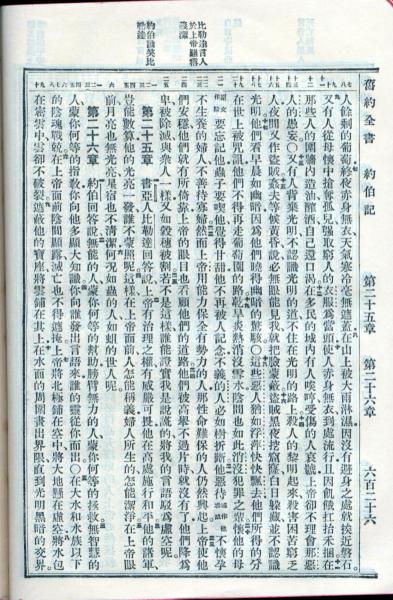 舊約全書 約伯記 第二十五章 第二十六章 六百二十六
人餘剩的葡萄終夜赤身無衣天氣寒冷毫無遮蓋在山上被大雨淋濕因沒有避身之處就挨近磐石
又有人從母懷中搶奪孤兒強取窮人的衣服爲當頭使人赤身無衣到處流行且因飢餓扛抬禾捆在
那些人的圍牆內造油醡酒自己還口渴在多民的城內有人唉哼受傷的人哀號上帝卻不理會那惡
人的愚妄○又有人背棄光明不認識光明的道不住在光明的路上殺人的黎明起來殺害困苦窮乏
人夜間又作盜賊姦夫等候黃昏說必無眼能見我就把臉蒙蔽盜賊黑夜挖窟窿白日躲藏並不認識
光明他們看早晨如幽暗因爲他們曉得幽暗的驚駭○這些惡人猶如浮萍快快飄去他們所得的分
在世上被咒詛他們不得再走葡萄園的路乾旱炎熱消沒雪水陰間也如此消沒犯罪之輩懷他的母
要忘記他蟲子要喫他覺得甘甜他不再被人記念不義的人必如樹折斷他惡待不懷孕
不生養的婦人不善待寡婦然而上帝用能力保全有勢力的人那性命難保的人仍然興起上帝使他
們安穩他們就有所倚靠上帝的眼目也看顧他們的道路他們被高舉不過片時就沒有了他們降爲
卑被除滅與衆人一樣又如穀穗被割若不是這樣誰能證實我是說謊的將我的言語駁爲虛空呢
第二十五章 書亞人比勒達回答說上帝有治理之權有威嚴可畏他在高處施行和平他的諸軍
豈能數算他的光亮一發誰不蒙照呢這樣在上帝面前人怎能稱義婦人所生的怎能潔淨在上帝眼
前月亮也無光亮星宿也不清潔何況如蟲的人如蛆的世人呢
第二十六章 約伯回答說無能的人蒙你何等的幫助膀臂無力的人蒙你何等的拯救無智慧的
人蒙你何等的指敎你向他多顯大知識你向誰發出言語來誰的靈從你而出○在大水和水族以下
的陰魂戰兢在上帝面前陰間顯露滅亡也不得遮掩上帝將北極鋪在空中將大地懸在虛空將水包
在密雲中雲卻不破裂遮蔽他的寶座將雲鋪在其上在水面的周圍畫出界限直到光明黑暗的交界